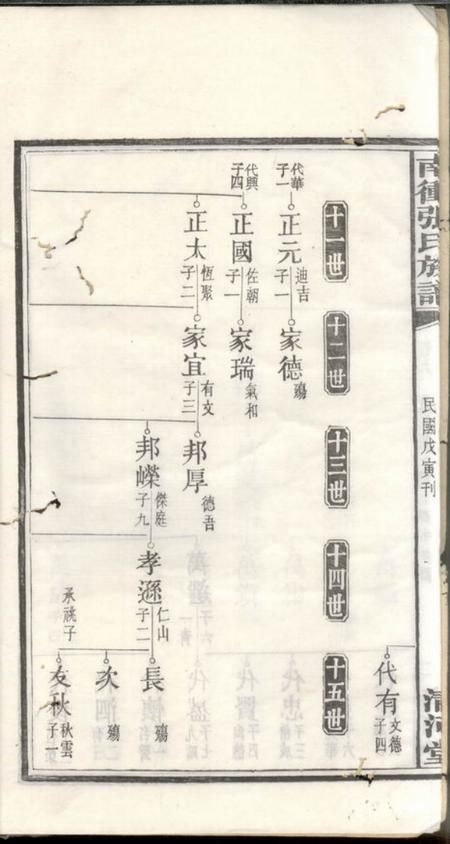 南衝張氏族譜
民國戊寅刊
清河堂
代有 文德 子四
十一世
十二世
十三世
十四世
十五世
代華 子一
正元 迪吉 子一
家德 殤
代興 子四
正國 佐朝 子一
家瑞 氣和
正太 恆聚 子二
家宜 有文 子三
邦厚 德吾
邦嶸 傑庭 子九
孝遜 仁山 子二
長 殤
次 殤
承祧子
友秋 秋雲 子一